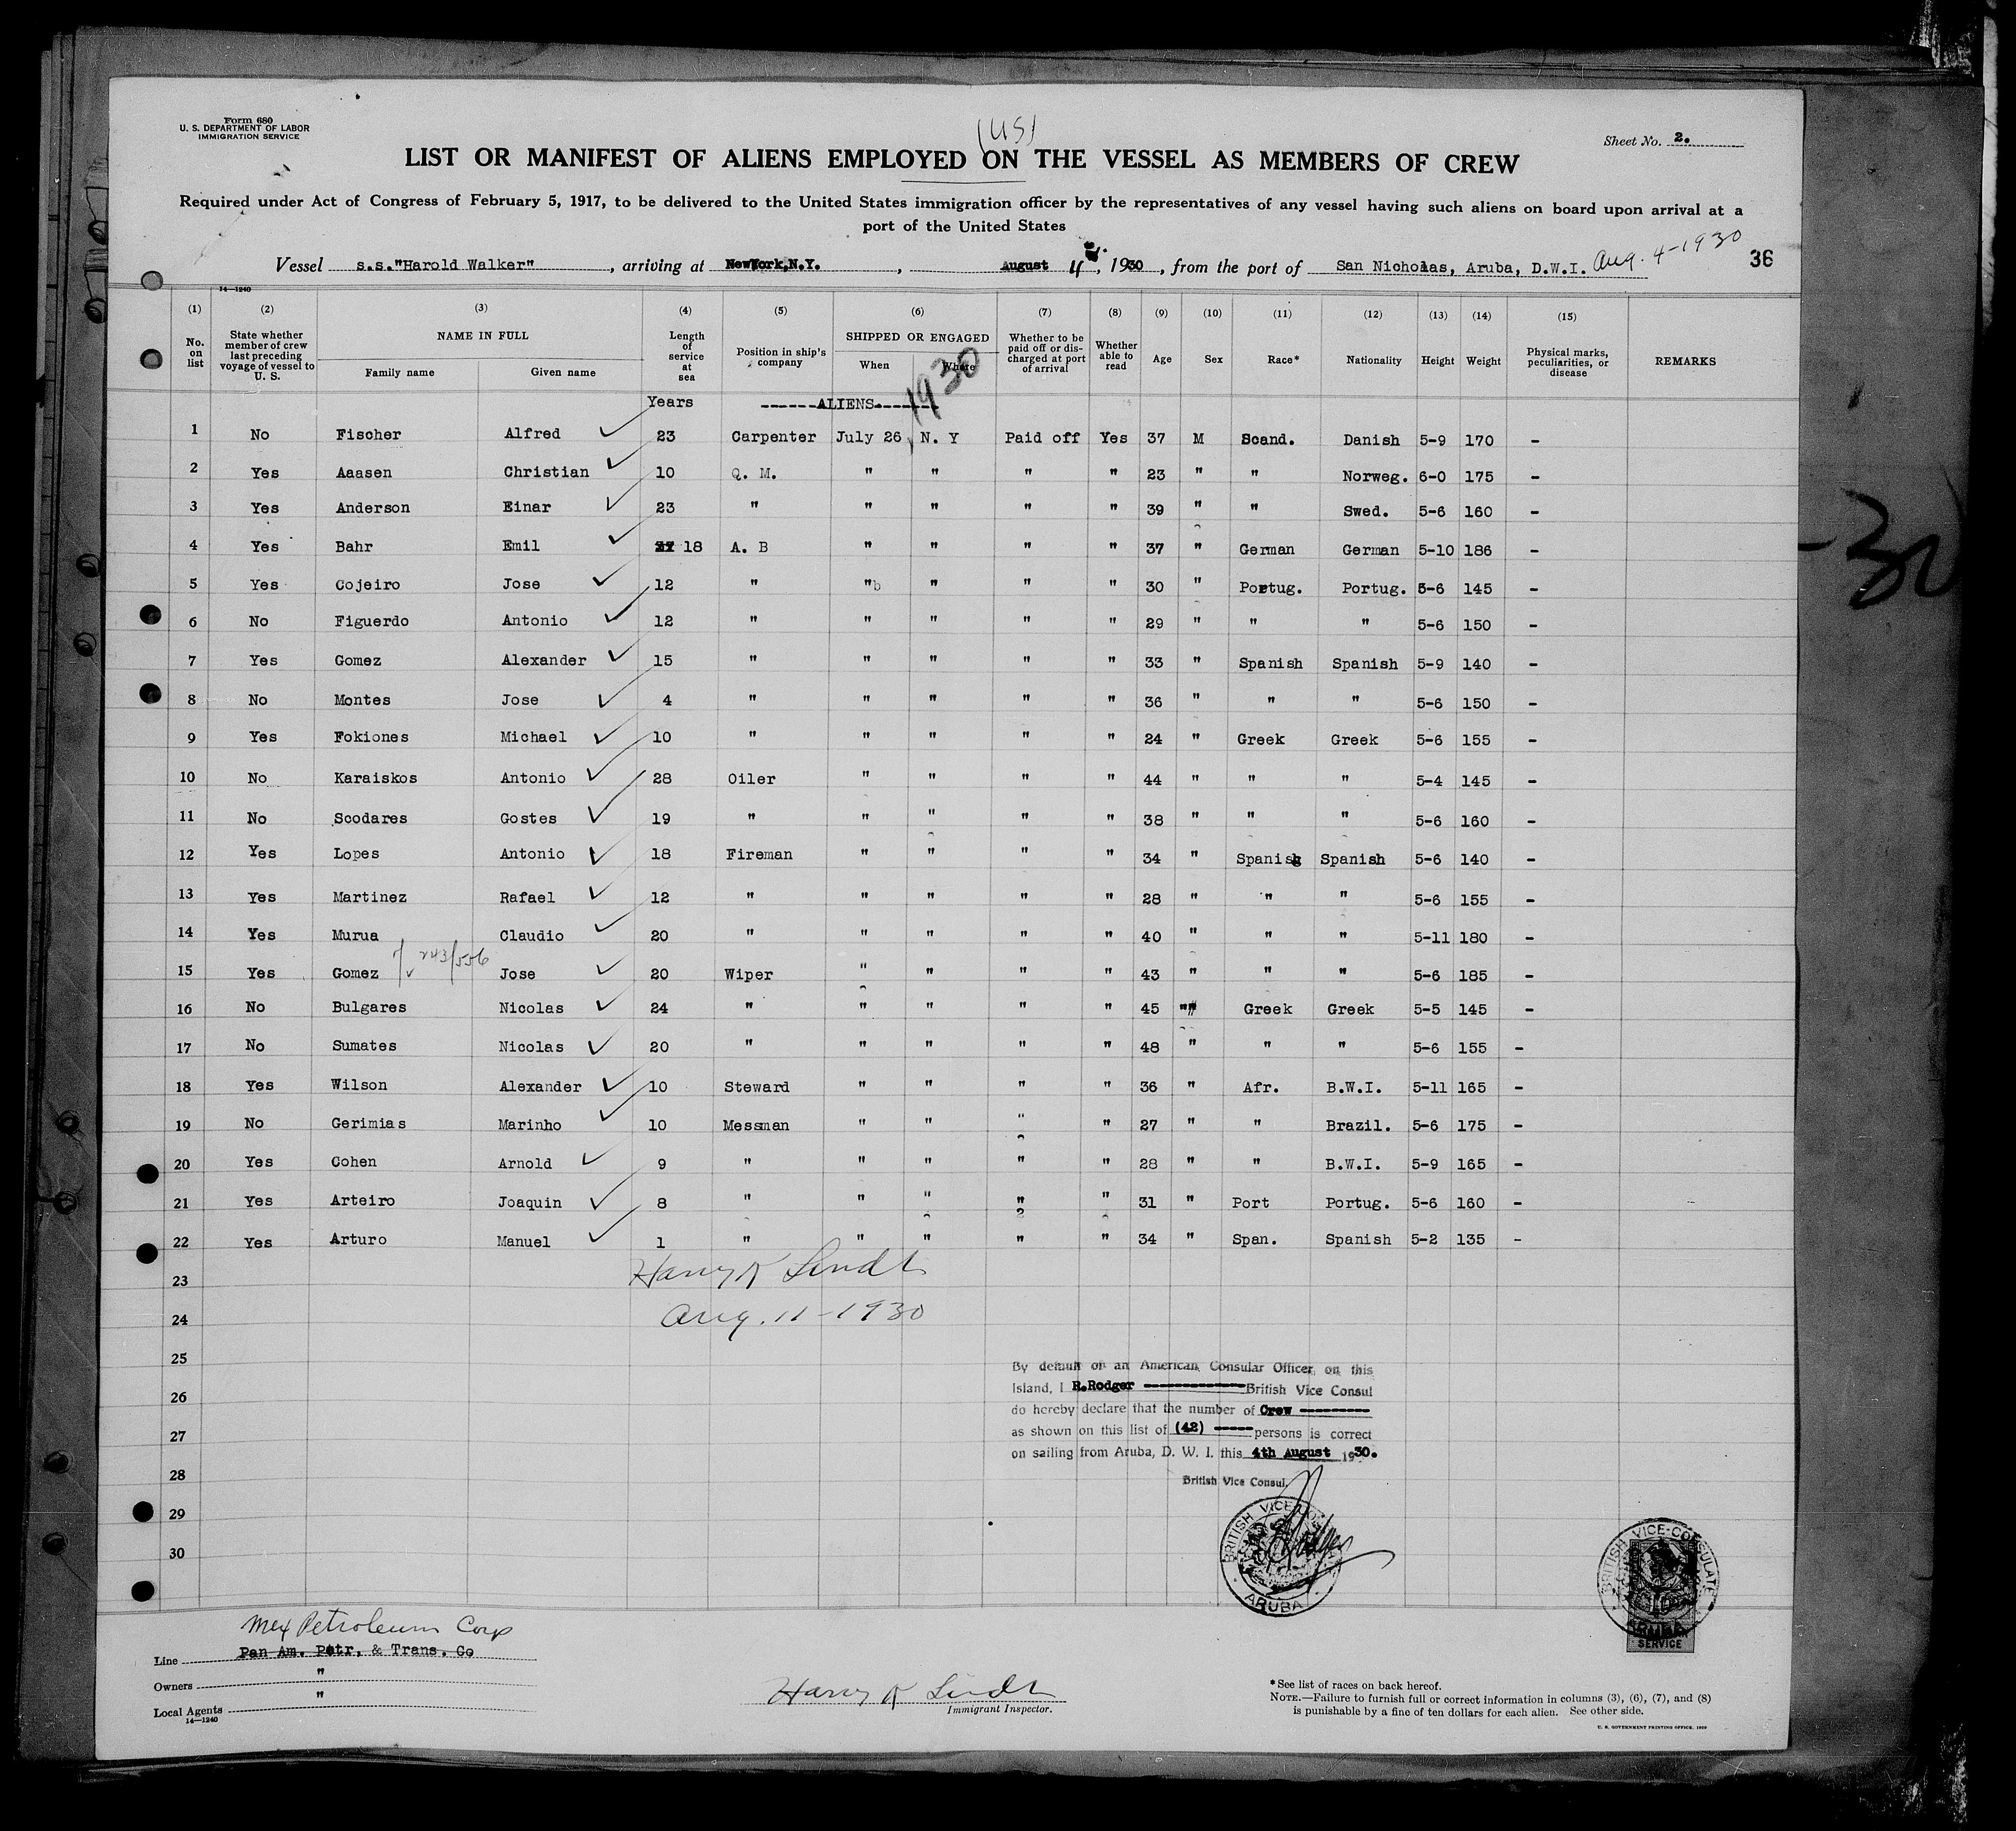 Form 680
U. S. DEPARTMENT OF LABOR
IMMIGRATION SERVICE
(US)
Sheet No. 2.
LIST OR MANIFEST OF ALIENS EMPLOYED ON THE VESSEL AS MEMBERS OF CREW
Required under Act of Congress of February 5, 1917, to be delivered to the United States immigration officer by the representatives of any vessel having such aliens on board upon arrival at a
port of the United States
Vessel s.s."Harold Walker", arriving at NewYork,N.Y., August 4, 1930, from the port of San Nicholas, Aruba, D.W.I. Aug. 4-1930
36
14—1240
(1) (2) (3) (4) (5) (6) (7) (8) (9) (10) (11) (12) (13) (14) (15)
No. on list
State whether member of crew last preceding voyage of vessel to U. S.
NAME IN FULL
Family name
Given name
Length of service at sea
Position in ship's company
SHIPPED OR ENGAGED
When
Where
Whether to be paid off or discharged at port of arrival
Whether able to read
Age
Sex
Race*
Nationality
Height
Weight
Physical marks, peculiarities, or disease
REMARKS
Years ------ALIENS------ 1930
1 No Fischer Alfred 23 Carpenter July 26 N. Y Paid off Yes 37 M Scand. Danish 5-9 170 -
2 Yes Aaasen Christian 10 Q. M. " " " " 23 " " Norweg. 6-0 175 -
3 Yes Anderson Einar 23 " " " " " 39 " " Swed. 5-6 160 -
4 Yes Bahr Emil 18 A. B " " " " 37 " German German 5-10 186 -
5 Yes Cojeiro Jose 12 " "b " " " 30 " Portug. Portug. 5-6 145 -
6 No Figuerdo Antonio 12 " " " " " 29 " " " 5-6 150 -
7 Yes Gomez Alexander 15 " " " " " 33 " Spanish Spanish 5-9 140 -
8 No Montes Jose 4 " " " " " 36 " " " 5-6 150 -
9 Yes Fokiones Michael 10 " " " " " 24 " Greek Greek 5-6 155 -
10 No Karaiskos Antonio 28 Oiler " " " " 44 " " " 5-4 145 -
11 No Scodares Gostes 19 " " " " " 38 " " " 5-6 160 -
12 Yes Lopes Antonio 18 Fireman " " " " 34 " Spanish Spanish 5-6 140 -
13 Yes Martinez Rafael 12 " " " " " 28 " " " 5-6 155 -
14 Yes Murua Claudio 20 " " " " " 40 " " " 5-11 180 -
243/556
15 Yes Gomez Jose 20 Wiper " " " " 43 " " " 5-6 185 -
16 No Bulgares Nicolas 24 " " " " " 45 " Greek Greek 5-5 145 -
17 No Sumates Nicolas 20 " " " " " 48 " " " 5-6 155 -
18 Yes Wilson Alexander 10 Steward " " " " 36 " Afr. B.W.I. 5-11 165 -
19 No Gerimias Marinho 10 Messman " " " " 27 " " Brazil. 5-6 175 -
20 Yes Cohen Arnold 9 " " " " " 28 " " B.W.I. 5-9 165 -
21 Yes Arteiro Joaquin 8 " " " " " 31 " Port Portug. 5-6 160 -
22 Yes Arturo Manuel 1 " " " " " 34 " Span. Spanish 5-2 135 -
23 Harry K Lindt
24 Aug. 11-1930
25
26
27
28
29
30
By default of an American Consular Officer on this
Island, I R.Rodger ------------ British Vice Consul
do hereby declare that the number of Crew ---------
as shown on this list of (42) ----- persons is correct
on sailing from Aruba, D. W. I. this 4th August 1930.
British Vice Consul.
BRITISH VICE-CONSULATE
ARUBA
BRITISH VICE-CONSULATE
ARUBA
SERVICE
-30
Mex Petroleum Corp
Line Pan Am. Petr. & Trans. Co
Owners "
Local Agents "
14—1240
Harry K Lindt
Immigrant Inspector.
*See list of races on back hereof.
NOTE.—Failure to furnish full or correct information in columns (3), (6), (7), and (8)
is punishable by a fine of ten dollars for each alien. See other side.
U. S. GOVERNMENT PRINTING OFFICE. 1929